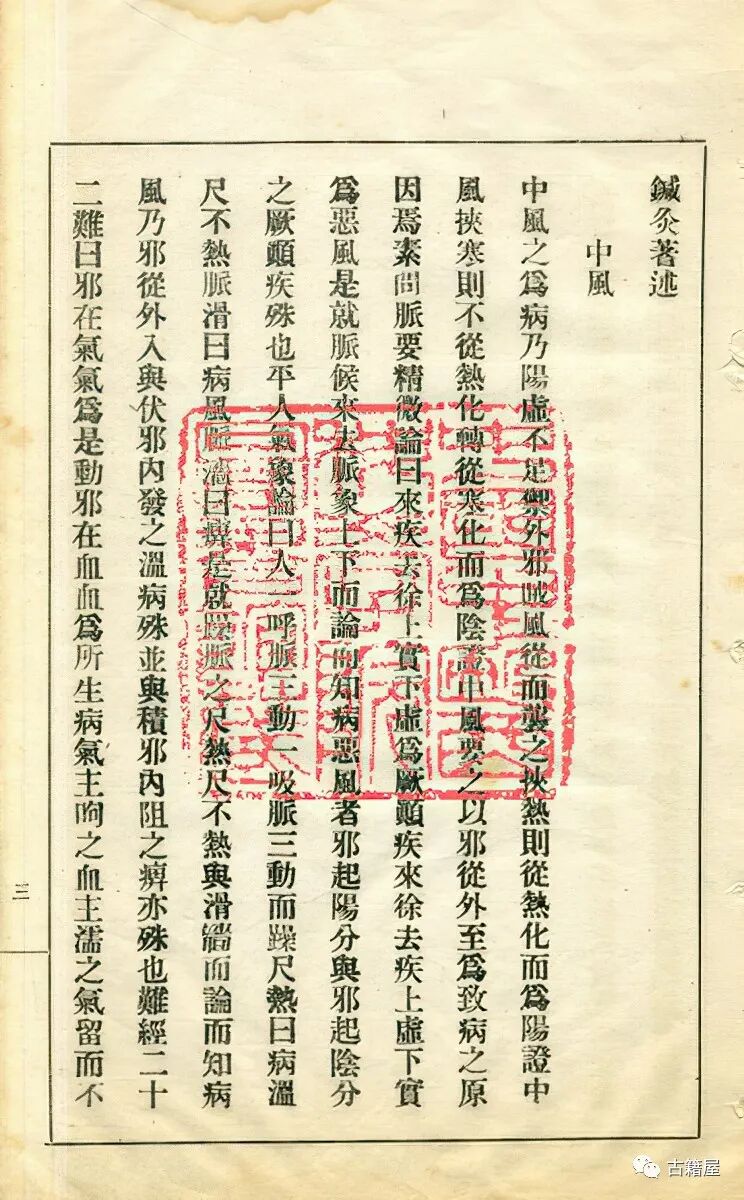 鍼灸著述
中風
中風之爲病乃陽虛不足禦外邪賊風從而襲之挾熱則從熱化而爲陽證中
風挾寒則不從熱化轉從寒化而爲陰證中風要之以邪從外至爲致病之原
因焉素問脈要精微論曰來疾去徐上實下虛爲厥顚疾來徐去疾上虛下實
爲惡風是就脈候來去脈象上下而論而知病惡風者邪起陽分與邪起陰分
之厥顚疾殊也平人氣象論曰人一呼脈三動一吸脈三動而躁尺熱曰病溫
尺不熱脈滑曰病風脈濇曰痹是就躁脈之尺熱尺不熱與滑濇而論而知病
風乃邪從外入與伏邪內發之溫病殊並與積邪內阻之痹亦殊也難經二十
二難曰邪在氣氣爲是動邪在血血爲所生病氣主呴之血主濡之氣留而不
三
古籍屋